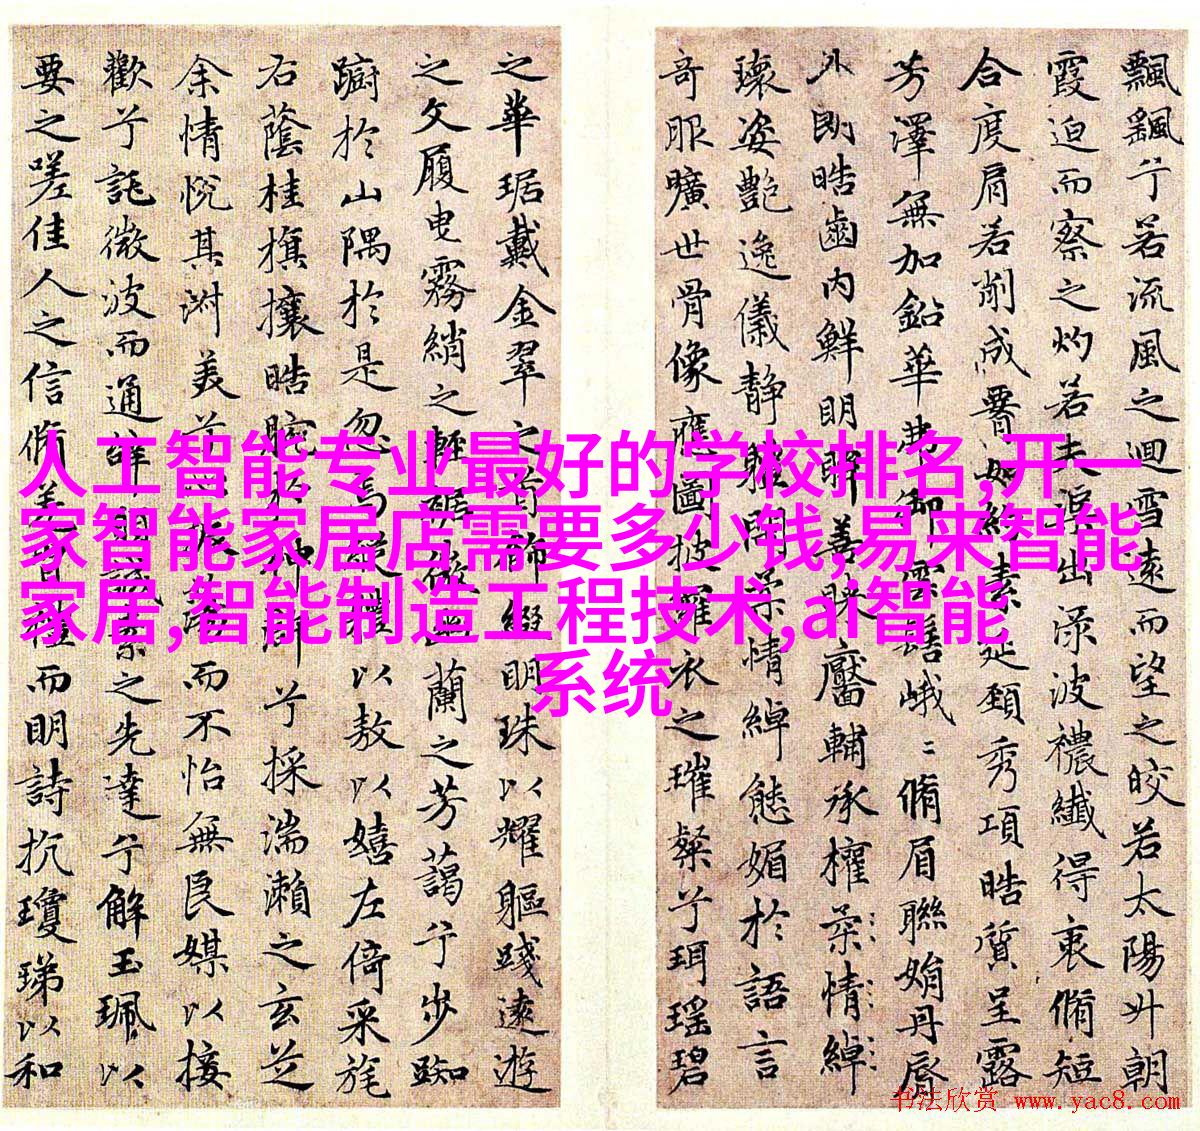 飄飖兮若流風之迴雪遠而望之皎若太陽升朝
霞迫而察之灼若夫渌出渌波襛纖得衷脩短
合度肩若削成腰如約素延頸秀項皓質呈露
芳澤無加鉛華弗御雲髻峨〻脩眉聯娟丹脣
外朗皓齒内鮮明眸善睞靨輔承權柔情綽
瓌姿艷逸儀靜體閑柔情綽態媚於語言
奇服曠世骨像應圖披羅衣之璀粲兮珥瑶碧
之華琚戴金翠之首飾綴明珠以耀軀踐遠遊
之文履曳霧綃之輕裾微幽蘭之芳藹兮步踟
蹰於山隅於是忽焉縱體以敖以嬉左倚采旄
右蔭桂旗攘皓腕於神滸兮採湍瀨之玄芝
余情悅其淑美兮心振蕩而不怡無良媒以接
歡兮託微波而通辭願誠素之先達兮解玉珮以
要之嗟佳人之信脩羌習禮而明詩抗瓊珶以和
人工智能专业最好的学校排名,开一
家智能家居店需要多少钱,易来智能
家居,智能制造工程技术,ai智能
系统
书法欣赏 www.yac8.com